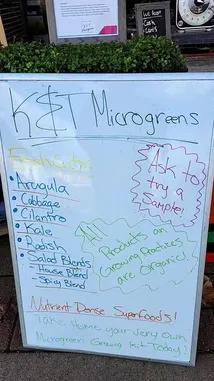 We have
Cash
Cart's
K&T Microgreens
Fresh Cuts:
• Arugula
• Cabbage
• Cilantro
• Kale
• Radish
• Salad Blends
- House Blend
- Spicy Blend
Ask to
try a
Sample!
All
Products and
Growing Practices
are organic!
Nutrient Dense Superfoods!
Take Home your very own
Microgreen Growing Kit Today!